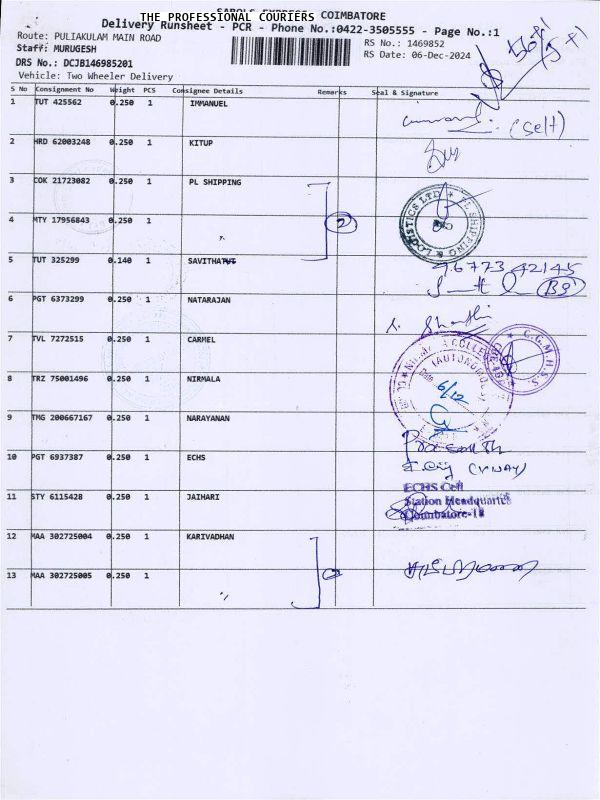 THE PROFESSIONAL COURIERS COIMBATORE
Delivery Runsheet - PCR - Phone No.:0422-3505555 - Page No.:1
Route: PULIAKULAM MAIN ROAD
Staff: MURUGESH
DRS No.: DCJB146985201
Vehicle: Two Wheeler Delivery
RS No.: 1469852
RS Date: 06-Dec-2024
S No Consignment No Weight PCS Consignee Details Remarks Seal & Signature
1 TUT 425562 0.250 1 IMMANUEL
(self)
2 HRD 62003248 0.250 1 KITUP
3 COK 21723082 0.250 1 PL SHIPPING
PL SHIPPING & LOGISTICS LTD
4 MTY 17956843 0.250 1
2
5 TUT 325299 0.140 1 SAVITHA
96773 42145
6 PGT 6373299 0.250 1 NATARAJAN
7 TVL 7272515 1 CARMEL
C.G.M.H.S.S.
(AUTONOMOUS)
8 TRZ 75001496 0.250 1 NIRMALA
6/12
9 TMG 200667167 0.250 1 NARAYANAN
Prasanth
10 PGT 6937387 0.250 1 ECHS
(VIJAY)
ECHS Cell
11 STY 6115428 0.250 1 JAIHARI
Station Headquarters
Coimbatore-18
12 MAA 302725004 0.250 1 KARIVADHAN
13 MAA 302725005 0.250 1